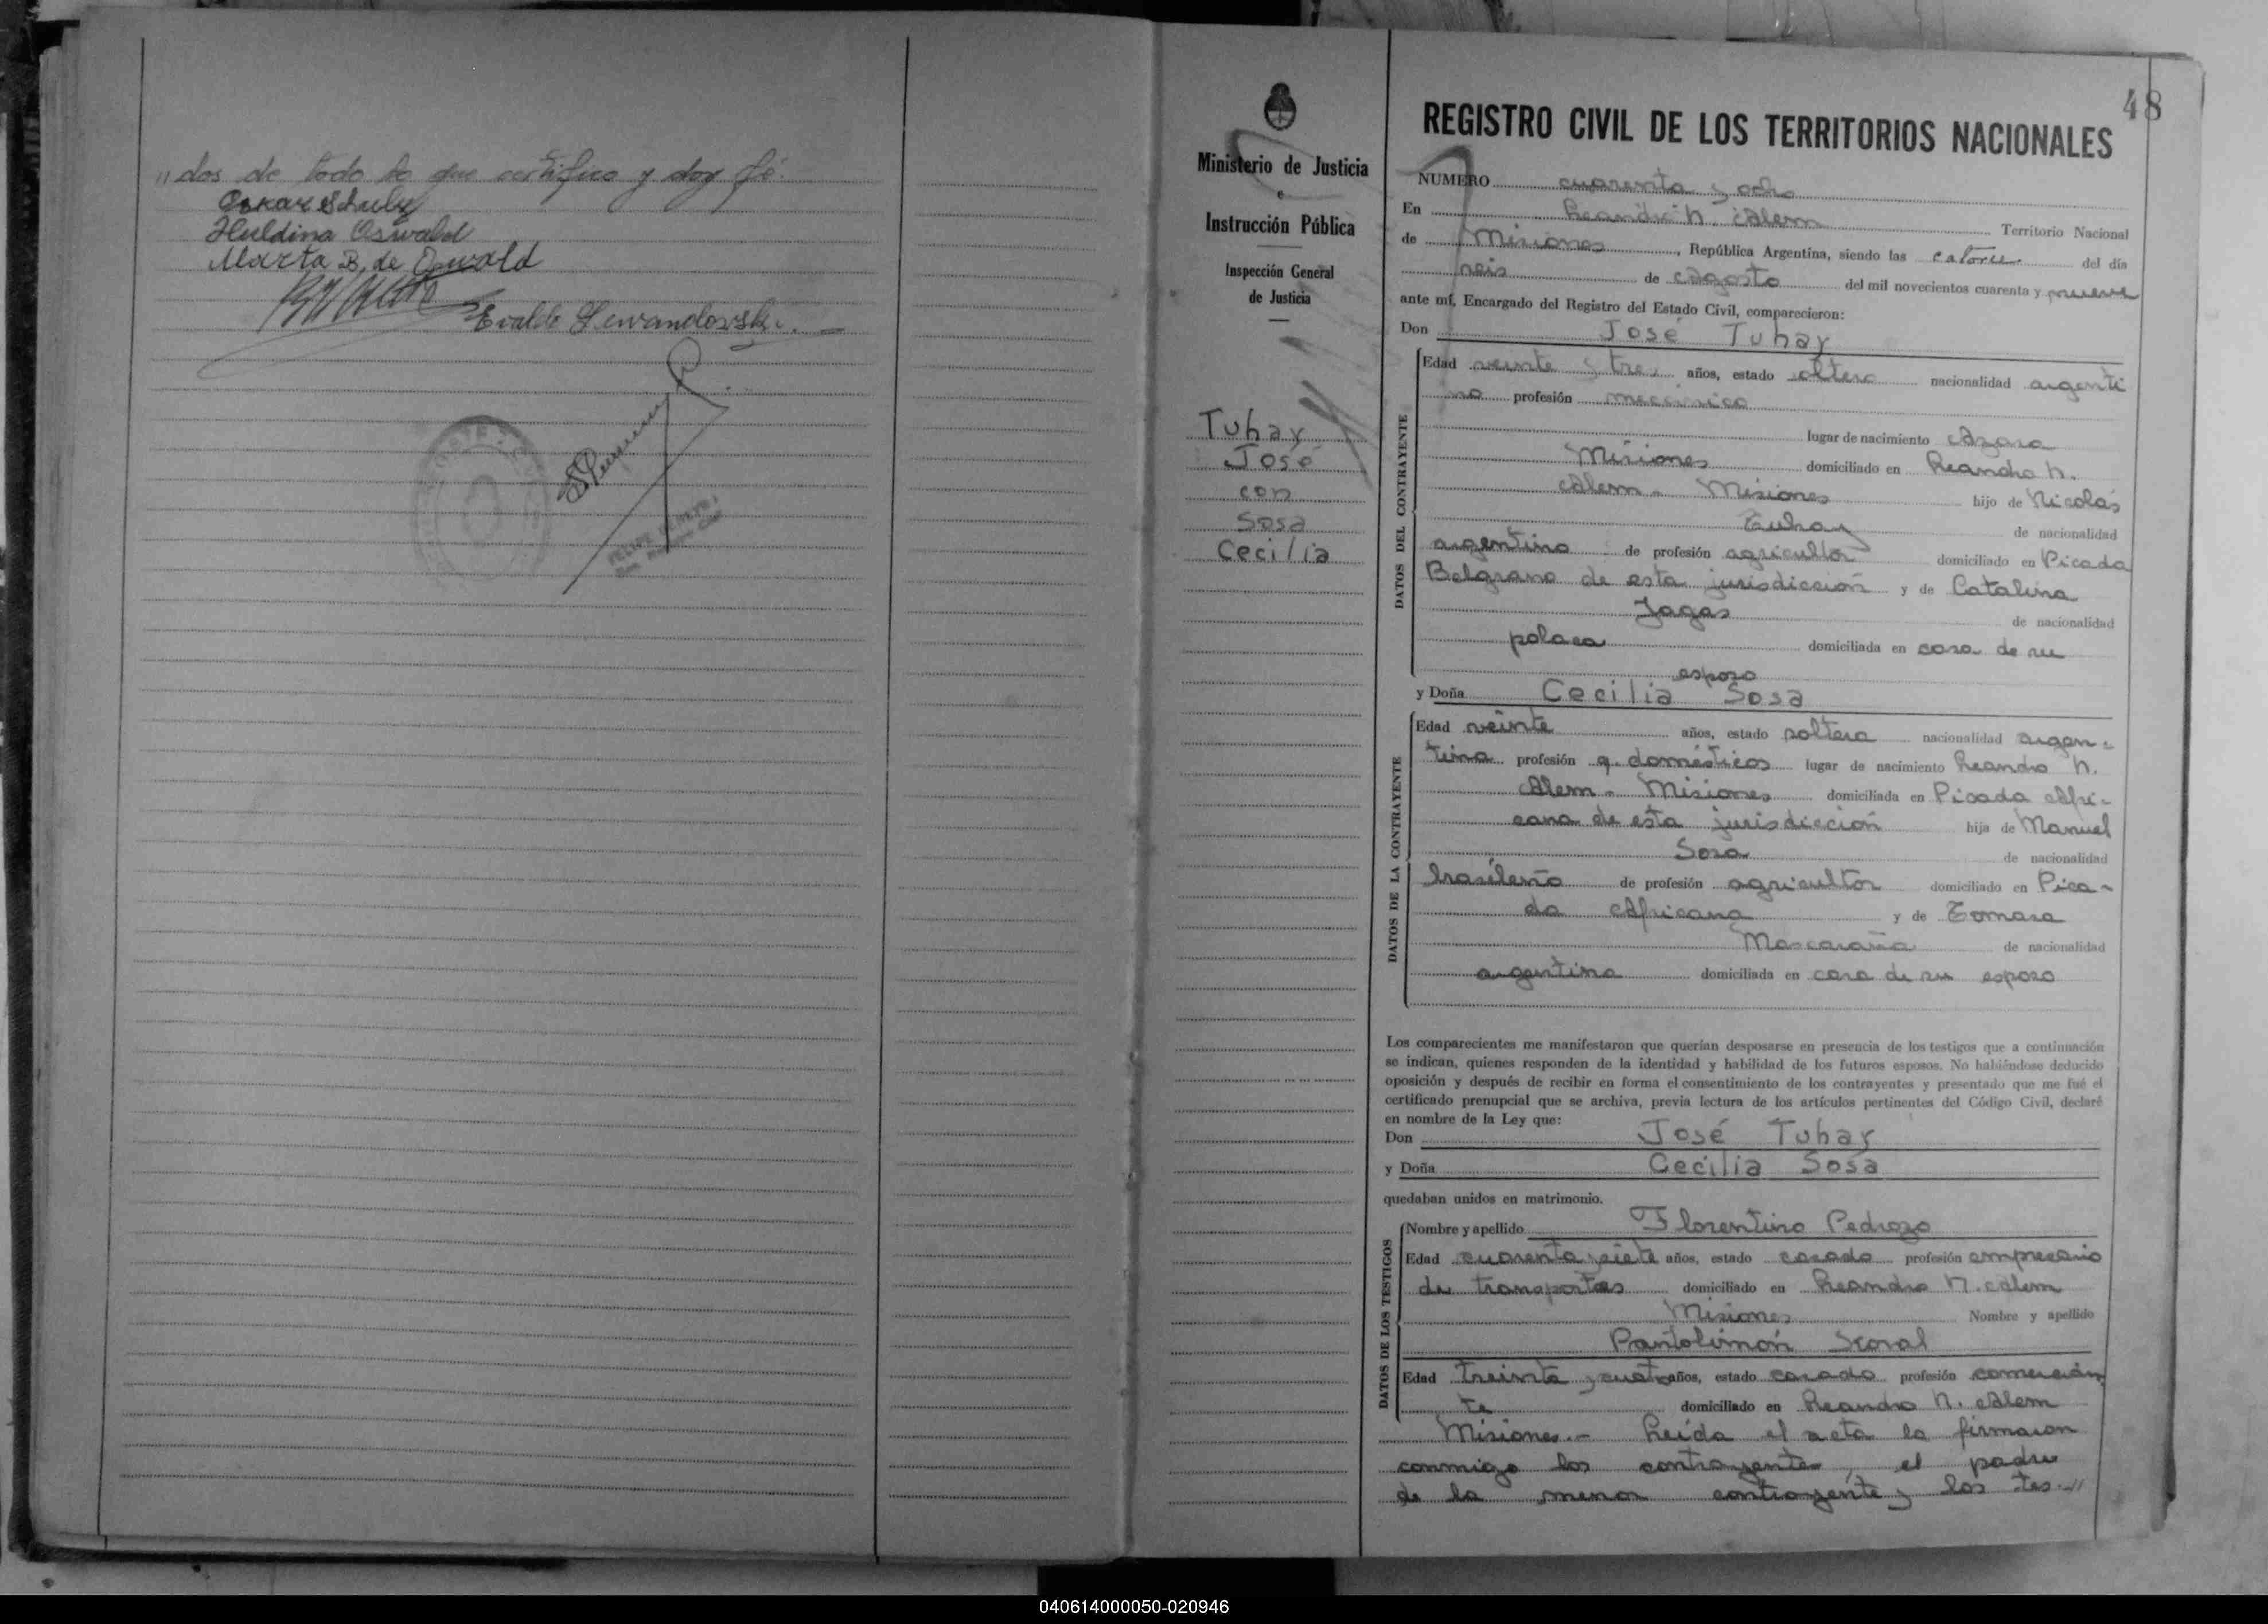 " dos de todo lo que certifico y doy fé.
Oskar Schulz
Huldina Oswald
Marta B. de Oswald
Evaldo Lewandowski. —
48
Ministerio de Justicia
e
Instrucción Pública
Inspección General
de Justicia
Tuhay
José
con
Sosa
Cecilia
REGISTRO CIVIL DE LOS TERRITORIOS NACIONALES
NUMERO cuarenta y ocho
En Leandro N. Alem Territorio Nacional
de Misiones, República Argentina, siendo las catorce del día
seis de Agosto del mil novecientos cuarenta y nueve
ante mí, Encargado del Registro del Estado Civil, comparecieron:
Don José Tuhay
DATOS DEL CONTRAYENTE
Edad veinte y tres años, estado soltero nacionalidad argenti
no profesión mecánico
lugar de nacimiento Azara
Misiones domiciliado en Leandro N.
Alem - Misiones hijo de Nicolás
Tuhay de nacionalidad
argentino de profesión agricultor domiciliado en Picada
Belgrano de esta jurisdicción y de Catalina
Jagas de nacionalidad
polaca domiciliada en casa de su
esposo
y Doña Cecilia Sosa
DATOS DE LA CONTRAYENTE
Edad veinte años, estado soltera nacionalidad argen-
tina profesión q. domésticos lugar de nacimiento Leandro N.
Alem - Misiones domiciliada en Picada Afri-
cana de esta jurisdicción hija de Manuel
Sosa de nacionalidad
brasileño de profesión agricultor domiciliado en Pica-
da Africana y de Tomasa
Mascaraña de nacionalidad
argentina domiciliada en casa de su esposo
Los comparecientes me manifestaron que querían desposarse en presencia de los testigos que a continuación
se indican, quienes responden de la identidad y habilidad de los futuros esposos. No habiéndose deducido
oposición y después de recibir en forma el consentimiento de los contrayentes y presentado que me fué el
certificado prenupcial que se archiva, previa lectura de los artículos pertinentes del Código Civil, declaré
en nombre de la Ley que:
Don José Tuhay
y Doña Cecilia Sosa
quedaban unidos en matrimonio.
DATOS DE LOS TESTIGOS
Nombre y apellido Florentino Pedrozo
Edad cuarenta y siete años, estado casado profesión empresario
de transportes domiciliado en Leandro N. Alem
Misiones Nombre y apellido
Pantolimón Storal
Edad treinta y cuatro años, estado casado profesión comercian
te domiciliado en Leandro N. Alem
Misiones.- Leída el acta la firmaron
conmigo los contrayentes, el padre
de la menor contrayente y los tes-"
040614000050-020946